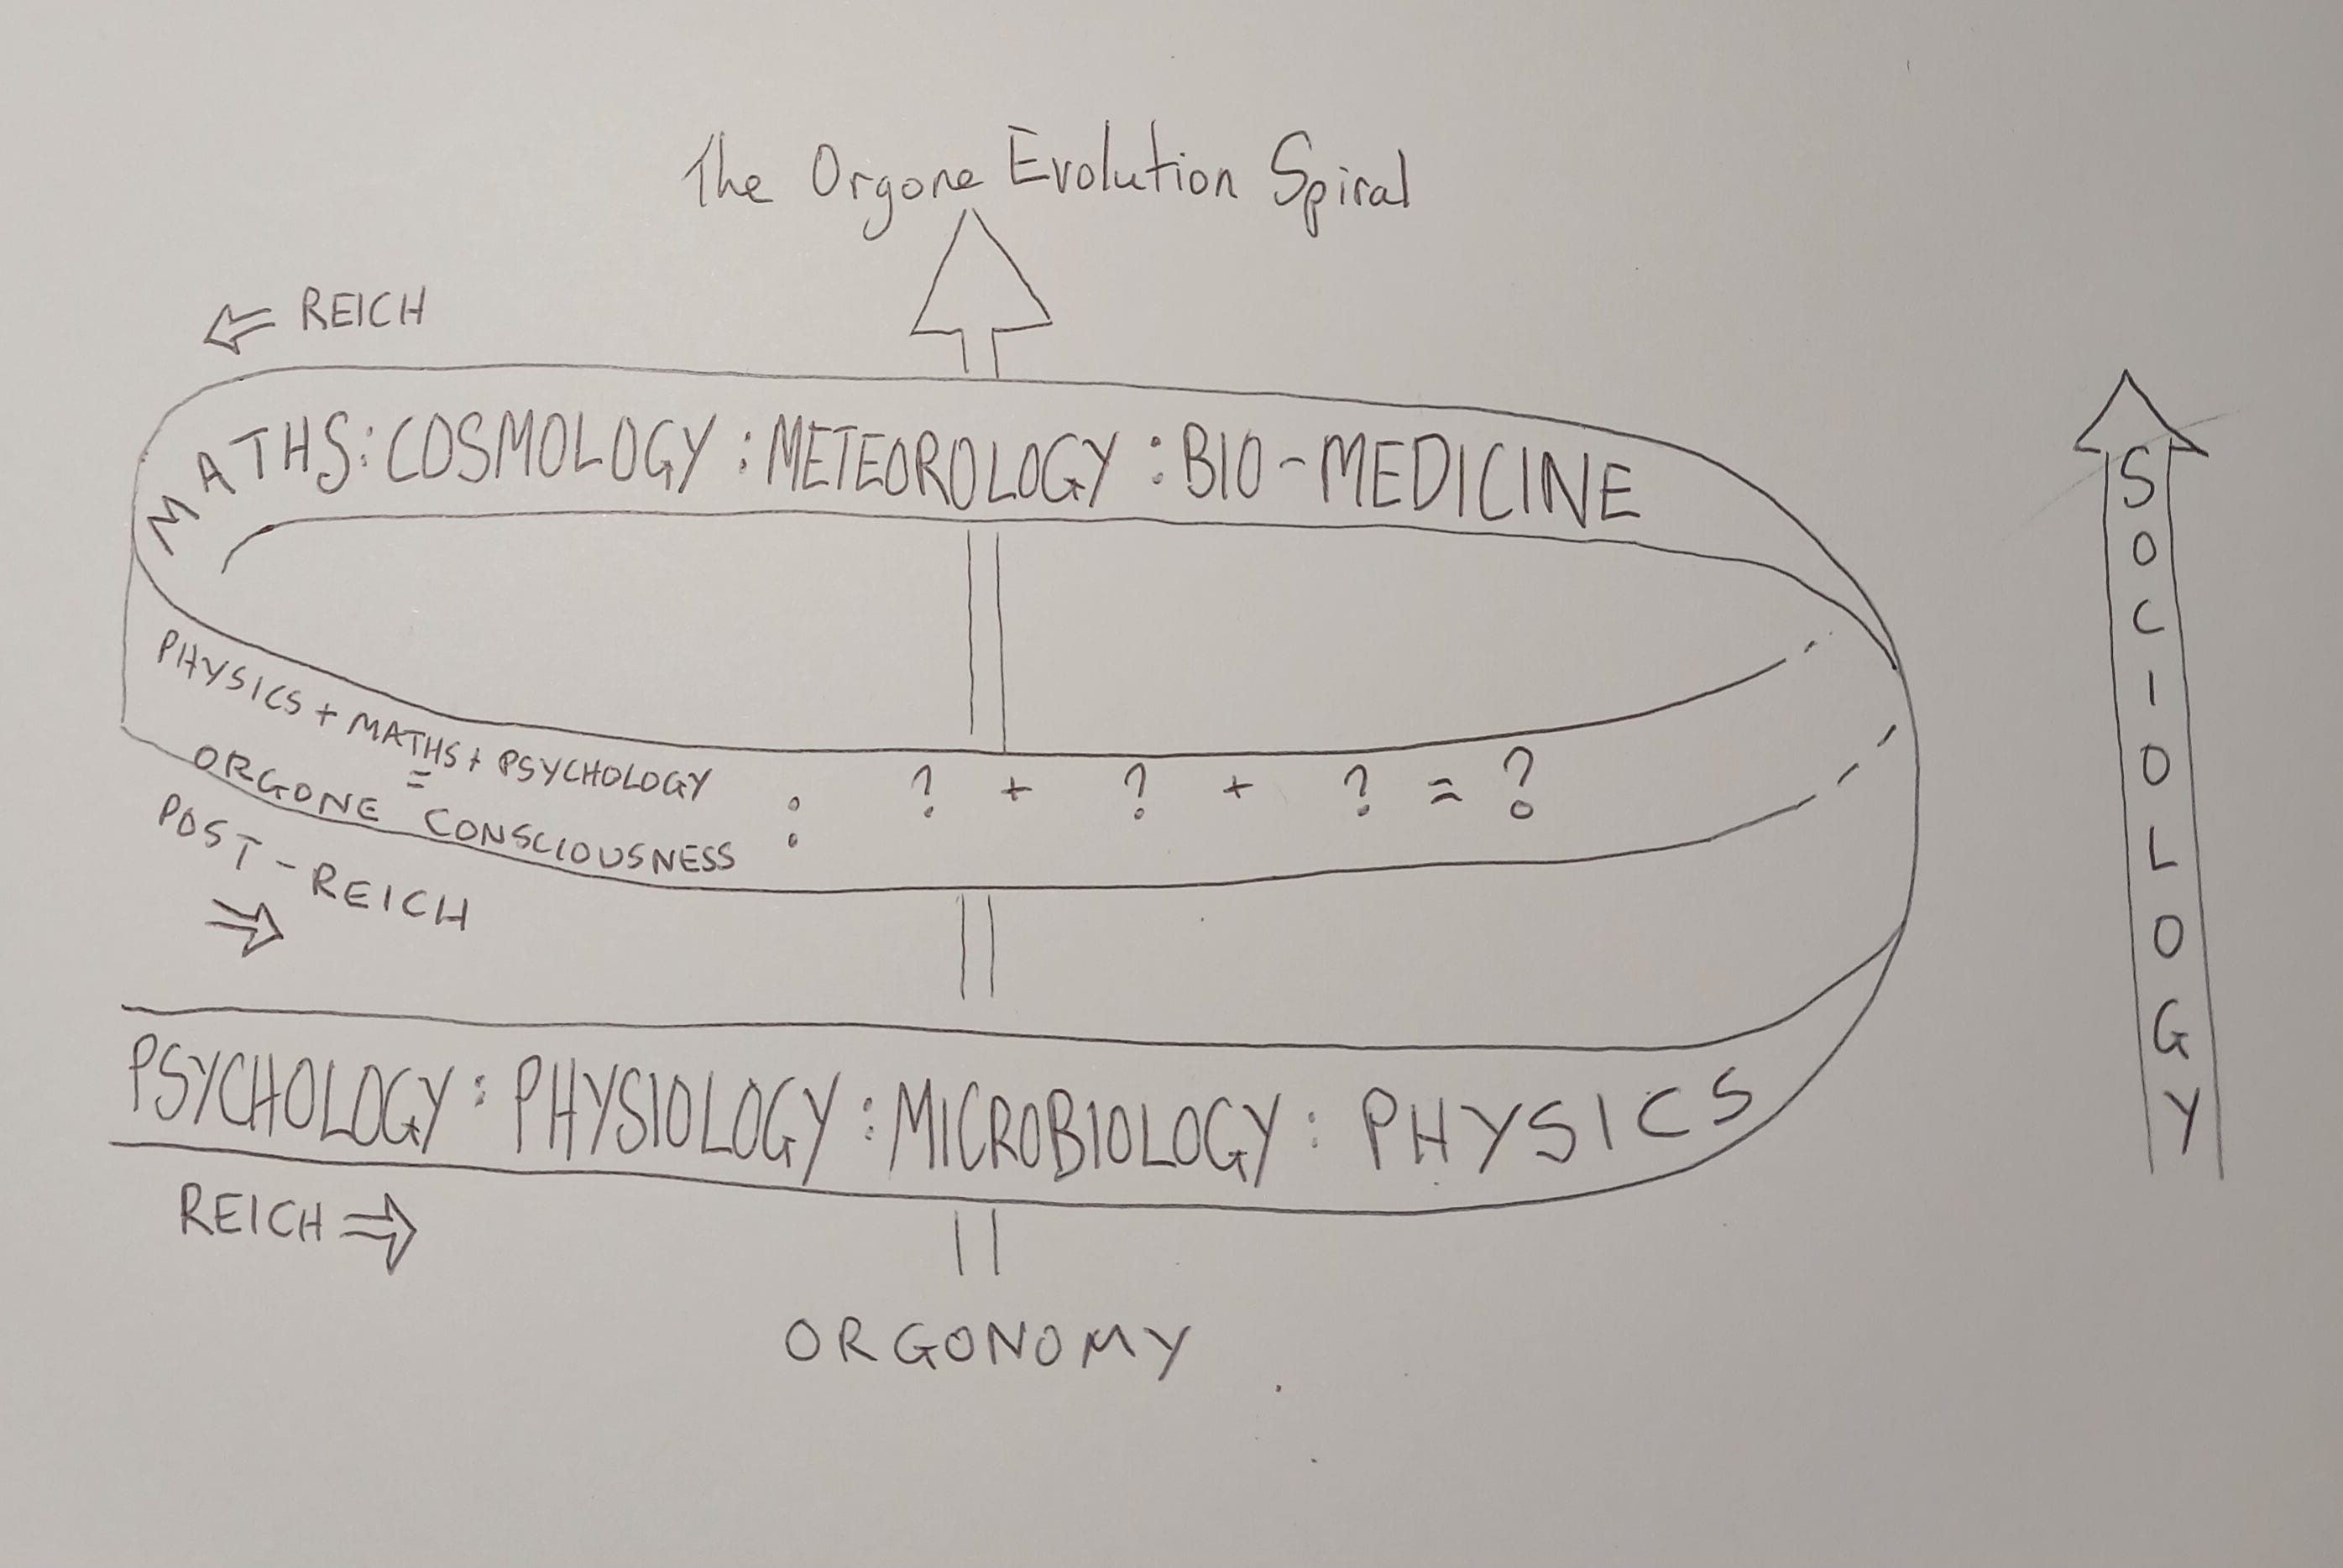 The Orgone Evolution Spiral
⇐ REICH
MATHS:COSMOLOGY:METEOROLOGY:BIO-MEDICINE
PHYSICS + MATHS + PSYCHOLOGY
=
ORGONE CONSCIOUSNESS
: ? + ? + ? = ?
POST-REICH
⇒
PSYCHOLOGY:PHYSIOLOGY:MICROBIOLOGY:PHYSICS
REICH ⇒
ORGONOMY
SOCIOLOGY